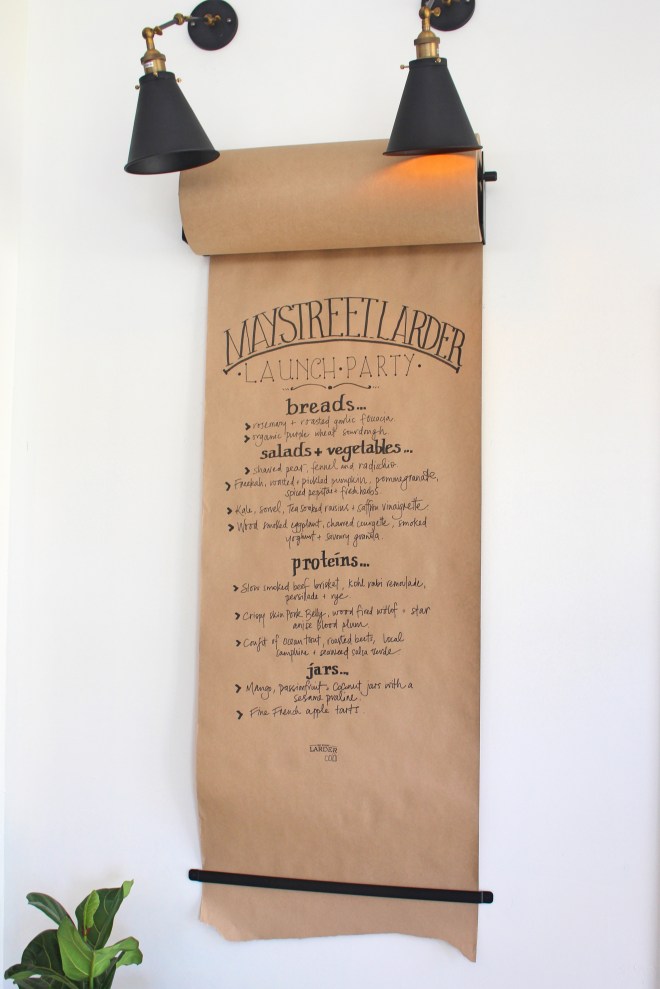 MAY.STREET.LARDER
·LAUNCH·PARTY·
breads...
> rosemary + roasted garlic foccacia
> organic purple wheat sourdough
salads + vegetables...
> shaved pear, fennel and radichio
> Freekah, roasted + pickled pumpkin, pomegranate,
spiced pepitas + fresh herbs
> Kale, sorrel, Tea soaked raisins + saffron vinaigrette
> Wood smoked eggplant, charred courgette, smoked
yoghurt + savoury granola.
proteins...
> Slow smoked beef brisket, Kohl rabi remoulade,
persillade + rye
> Crispy skin Pork Belly, wood fired witlof + star
anise Blood plum.
> Confit of Ocean trout, roasted beets, local
samphire + seaweed salsa verde.
jars...
> Mango, passionfruit + Coconut jars with a
sesame praline.
> Fine French apple tarts
LARDER